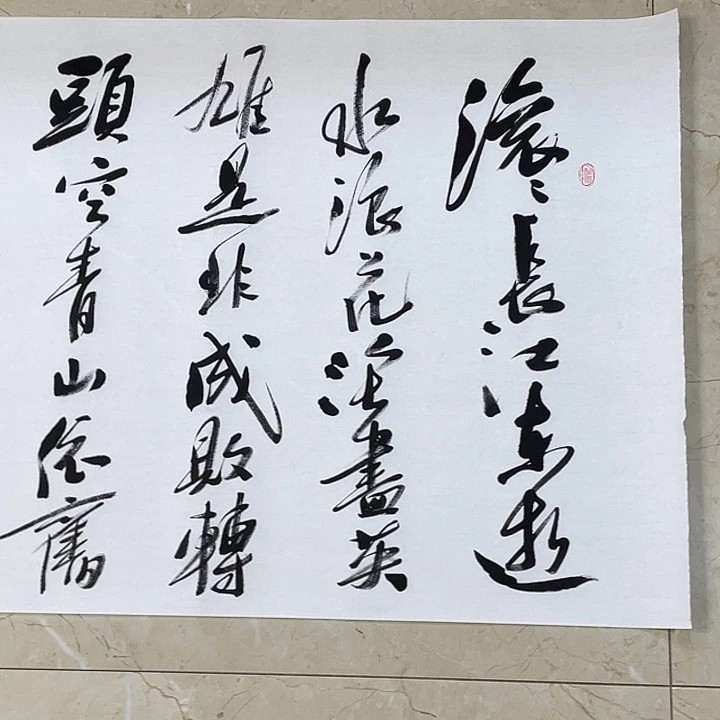 滾〻長江東逝
水浪花淘盡英
雄是非成敗轉
頭空青山依舊